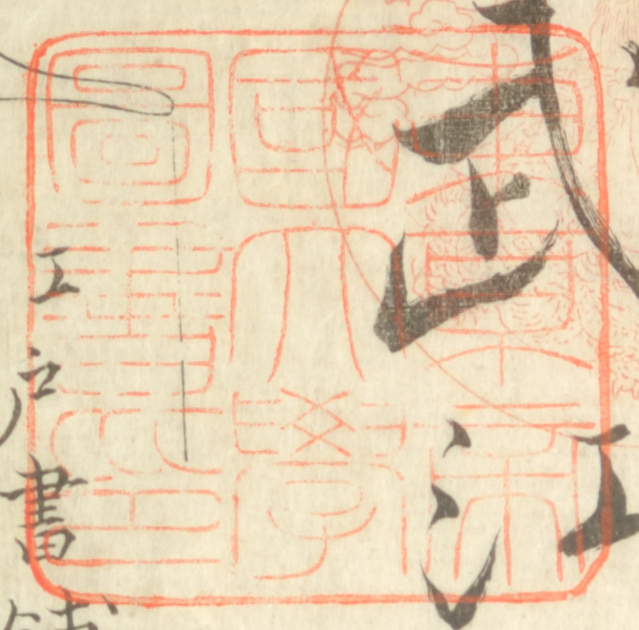 武江
東京帝
國大學
圖書印
江戸書